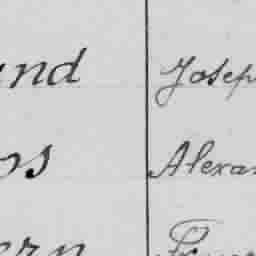 und Josep
os Alexan
ern